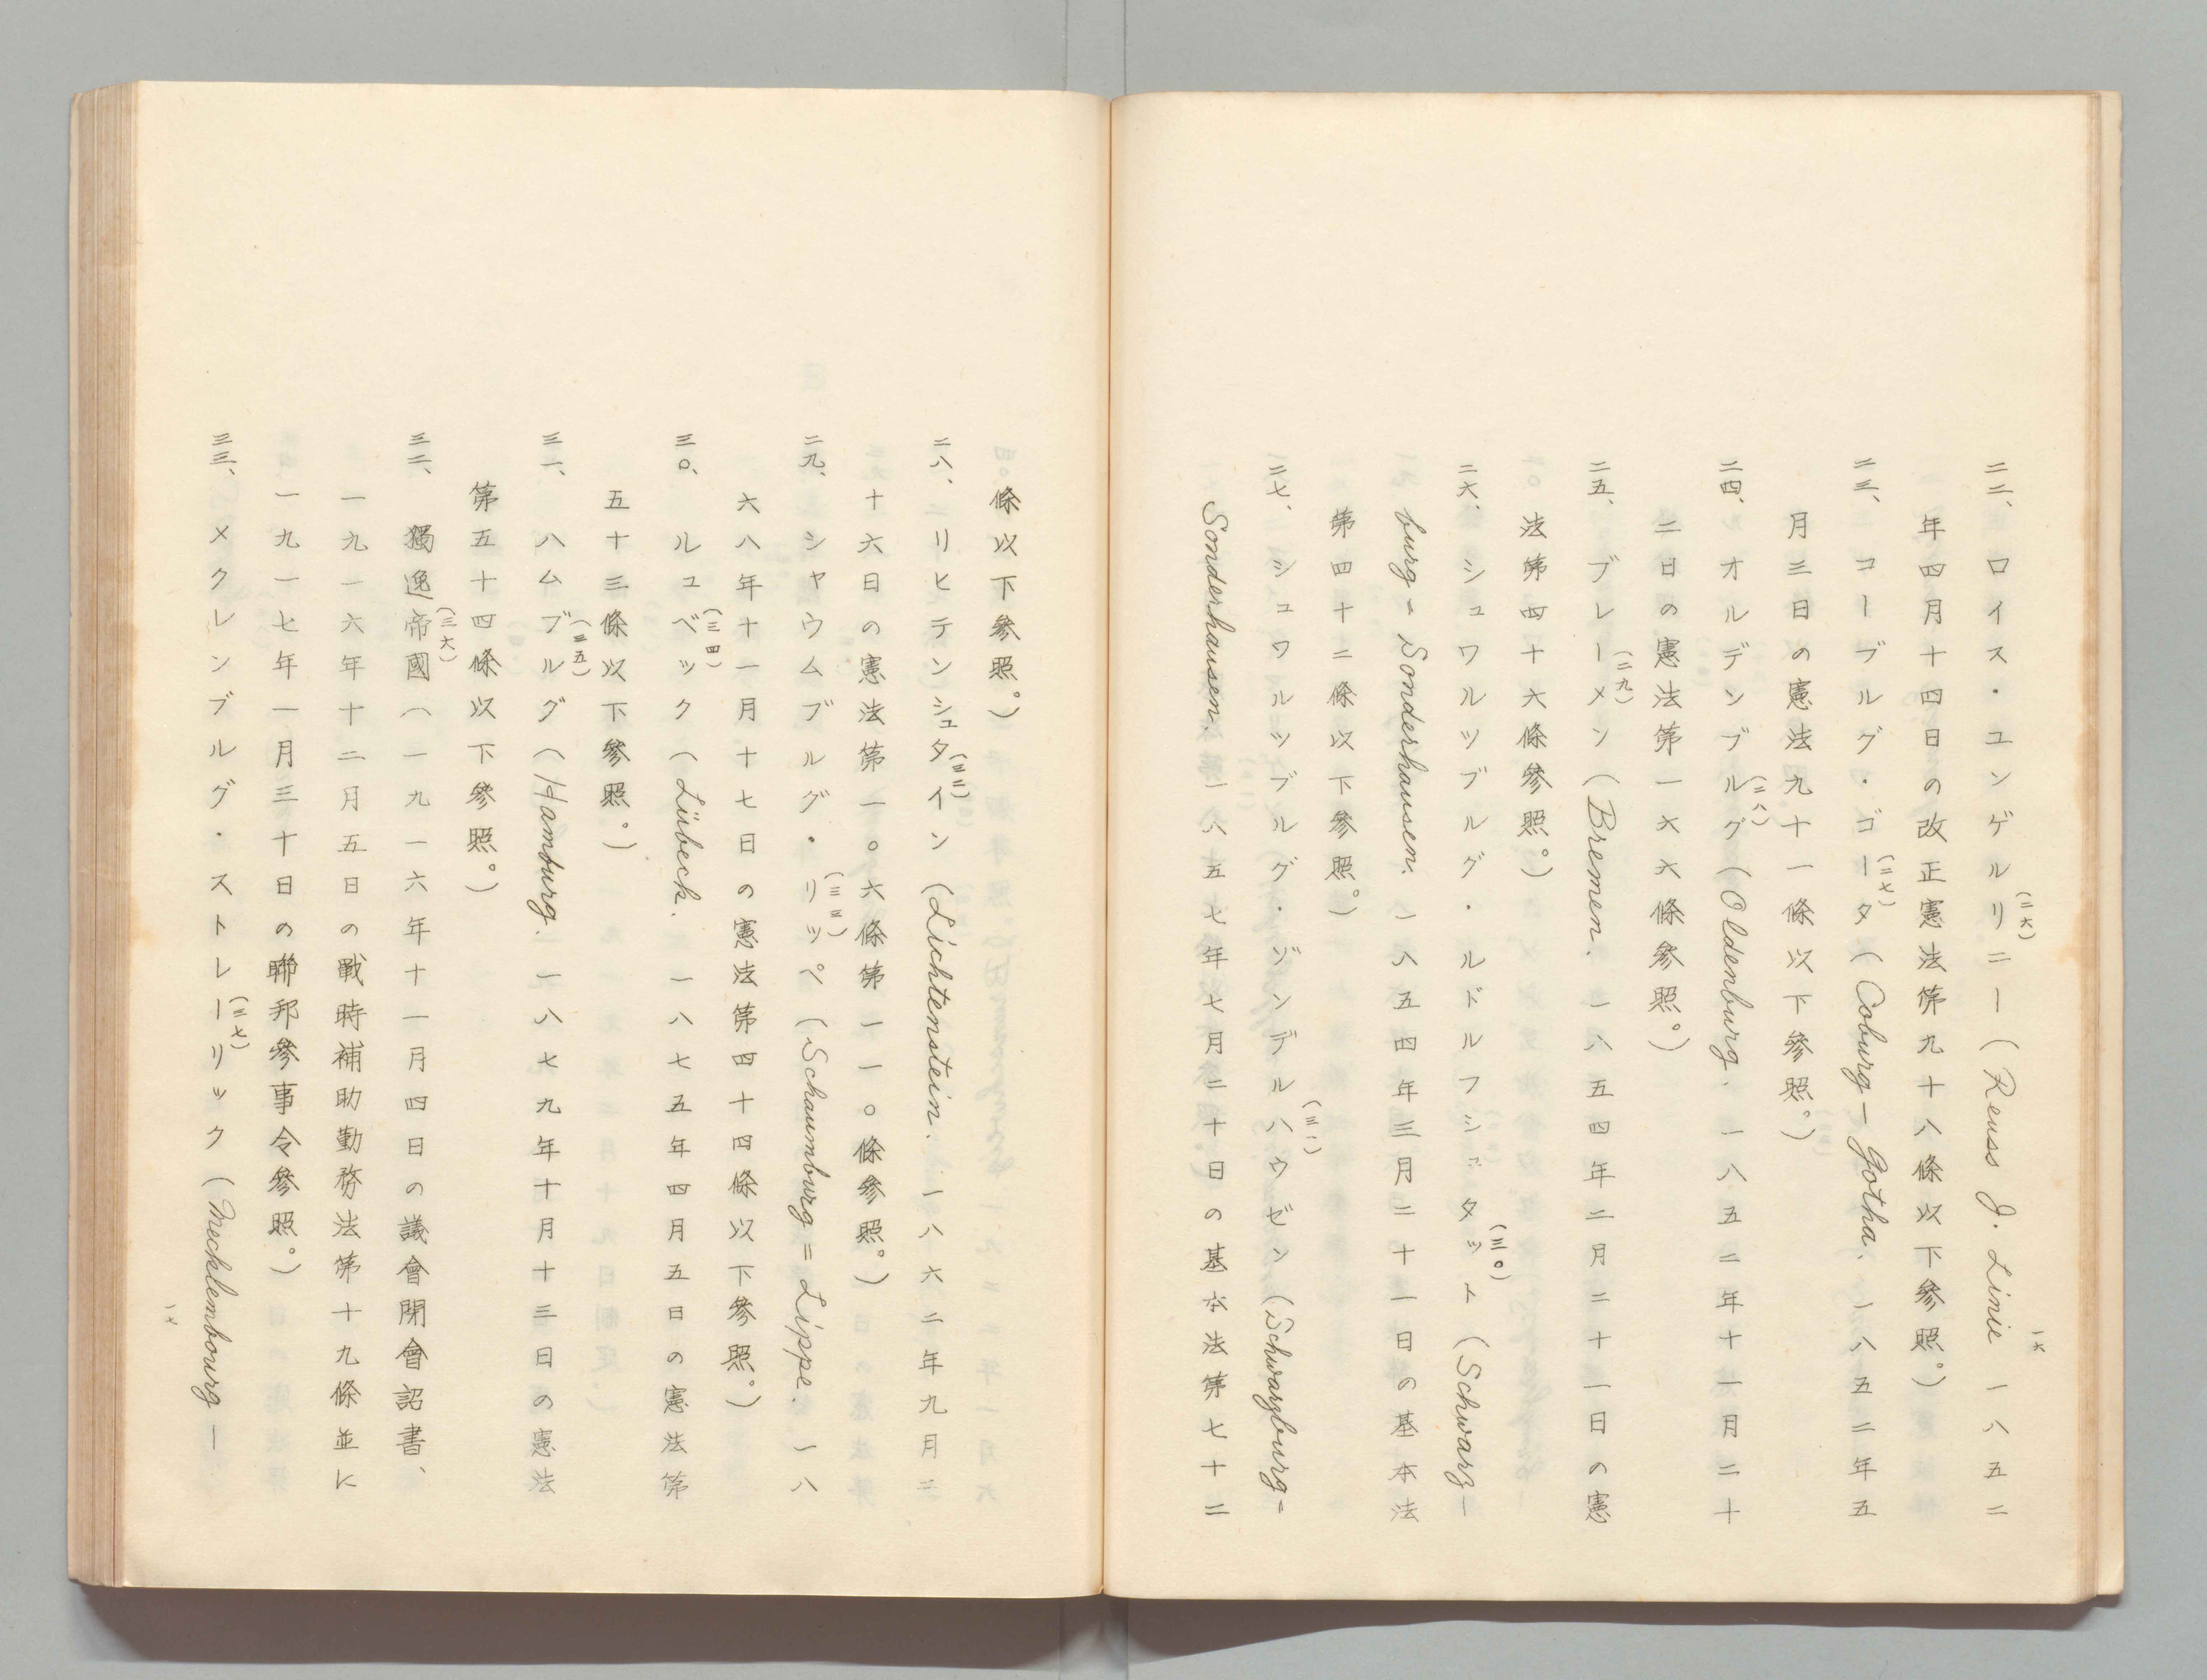 二二、ロイス・ユンゲルリニー(二六)(Reuss J. Linie 一八五二
年四月十四日の改正憲法第九十八條以下參照。)
二三、コーブルグ・ゴータ(二七)(Coburg—Gotha. 一八五二年五
月三日の憲法九十一條以下參照。)
二四、オルデンブルグ(二八)(Oldenburg. 一八五二年十一月二十
二日の憲法第一六六條參照。)
二五、ブレーメン(二九)(Bremen. 一八五四年二月二十一日の憲
法第四十六條參照。)
二六、シュワルツブルグ・ルドルフシュタット(三〇)(Schwarz—
burg=Sonderhausen. 一八五四年三月二十一日の基本法
第四十二條以下參照。)
二七、シュワルツブルグ・ゾンデルハウゼン(三一)(Schwarzburg=
Sonderhausen. 一八五七年七月二十日の基本法第七十二
一六
條以下參照。)
二八、リヒテンシュタイン(三二)(Lichtenstein. 一八六二年九月二
十六日の憲法第一〇六條第一一〇條參照。)
二九、シャウムブルグ・リッペ(三三)(Schaumburg=Lippe. 一八
六八年十一月十七日の憲法第四十四條以下參照。)
三〇、ルュベック(三四)(Lübeck. 一八七五年四月五日の憲法第
五十三條以下參照。)
三一、ハムブルグ(三五)(Hamburg. 一八七九年十月十三日の憲法
第五十四條以下參照。)
三二、獨逸帝國(三六)(一九一六年十一月四日の議會閉會詔書、
一九一六年十二月五日の戰時補助勤務法第十九條並に
一九一七年一月三十日の聯邦參事令參照。)
三三、メクレンブルグ・ストレーリック(三七)(Mecklembourg—
一七